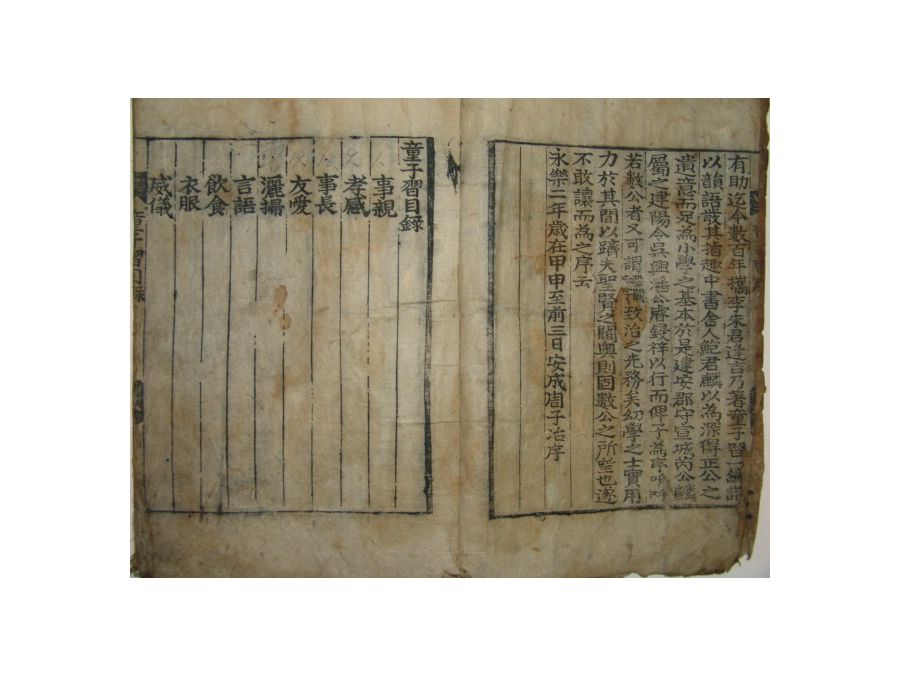 有助迄今數百年攜李朱君逢吉乃著童子習一編諧
以韻語敍其指趣中書舎人鮑君麟以為深得正公之
遺意而足為小學之基本於是建安郡守宣城芮公麟
屬之建陽令吳興潘公鋟梓以行而俾予為序嗚呼
若數公者又可謂致治之先務矣幼學之士實用
力於其間以躋夫聖賢之閫奧則固數公之所望也遂
不敢讓而為之序云
永樂二年歳在甲申至前三日安成周子冶序
童子習目錄
事親
孝感
事長
友愛
灑掃
言語
飮食
衣服
威儀
童子習目錄